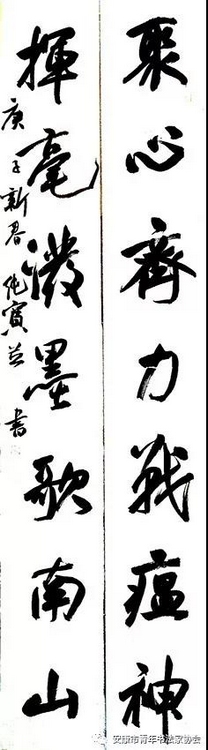 聚心齊力戰瘟神
揮毫潑墨歌南山
庚子新春 純寶並書
安康市青年书法家协会